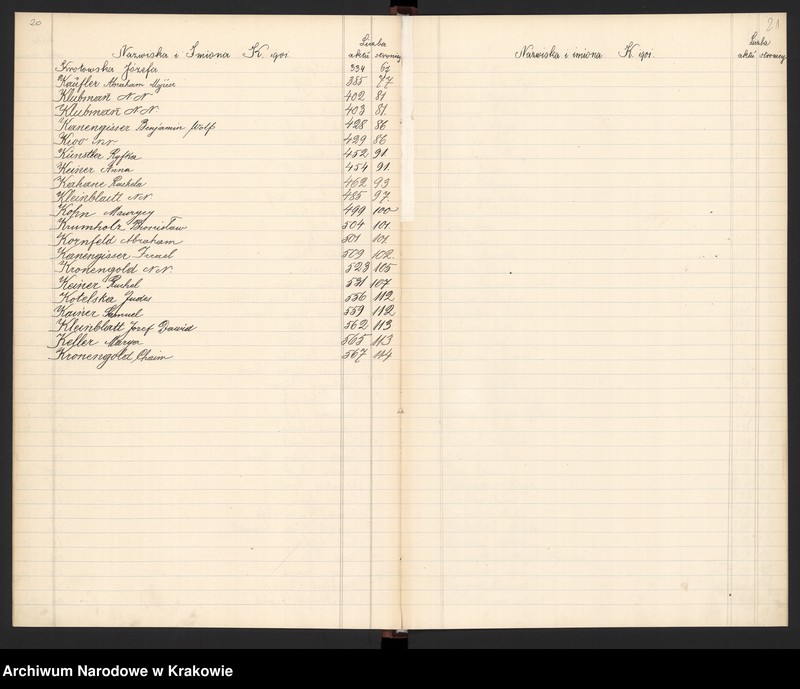 20
Liczba
Nazwiska i Imiona K. 901.
aktu stronicy
Krotowska Józefa 334 67
Kaufler Abraham Mojżesz 385 77
Klubman N N 402 81
Klubman N N. 403 81.
Kanengisser Benjamin Wolf 428 86
Kioo N N 429 86
Künstler Ryfka 452 91
Keiner Anna 454 91.
Kahane Rachela 462 93
Kleinblatt N N. 485 97.
Kohn Maurycy 499 100
Krumholz Bronisław 504 101.
Kornfeld Abraham 501 101.
Kanengisser Izrael 509 102.
Kronengold N N. 523 105
Keiner Ruchel 531 107
Kotelska Judes 556 112
Kainer Samuel 559 112
Kleinblatt Józef Dawid 562 113
Keller Marya 565 113
Kronengold Chaim 567 114
21
Liczba
Nazwiska i imiona K. 901.
aktu stronicy
Archiwum Narodowe w Krakowie